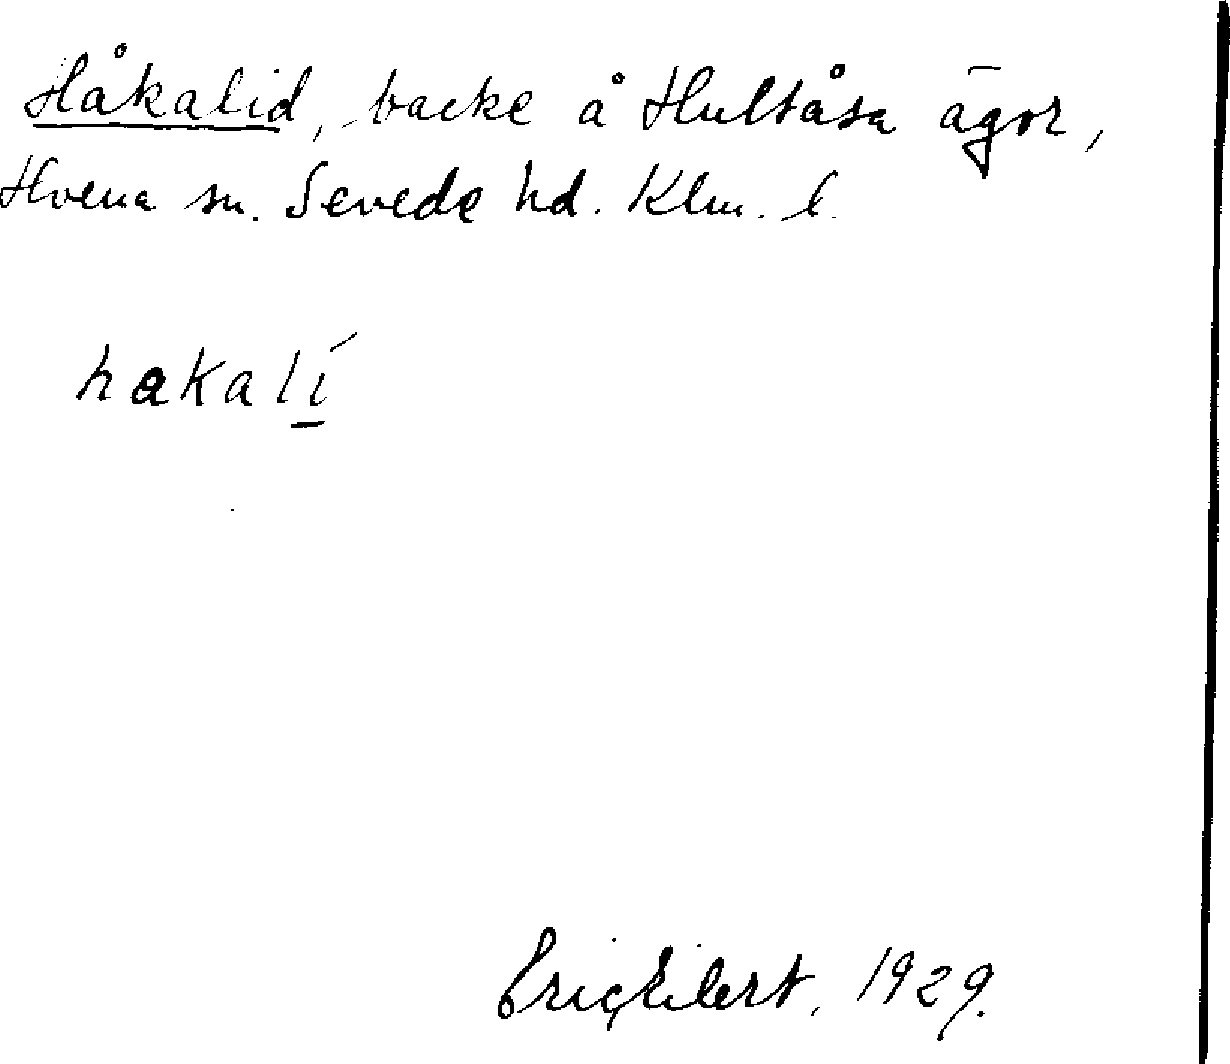 Håkalid, backe å Hultåsa ägor,
Hvena sn. Sevede hd. Klm. l.
hakalí
Eric Eilert, 1929.